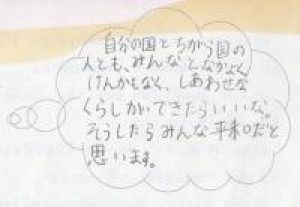 自分の国とちがう国の
人とも、みんなとなかよく
けんかもなく、しあわせな
くらしができたらいいな。
そうしたらみんな平和だと
思います。